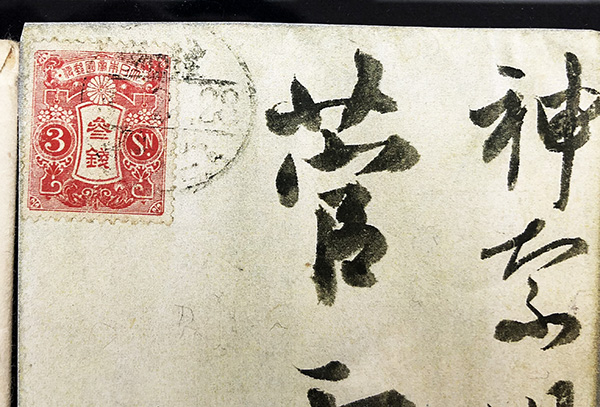 神奈川
菅
大日本帝國郵便
參錢
3 SN